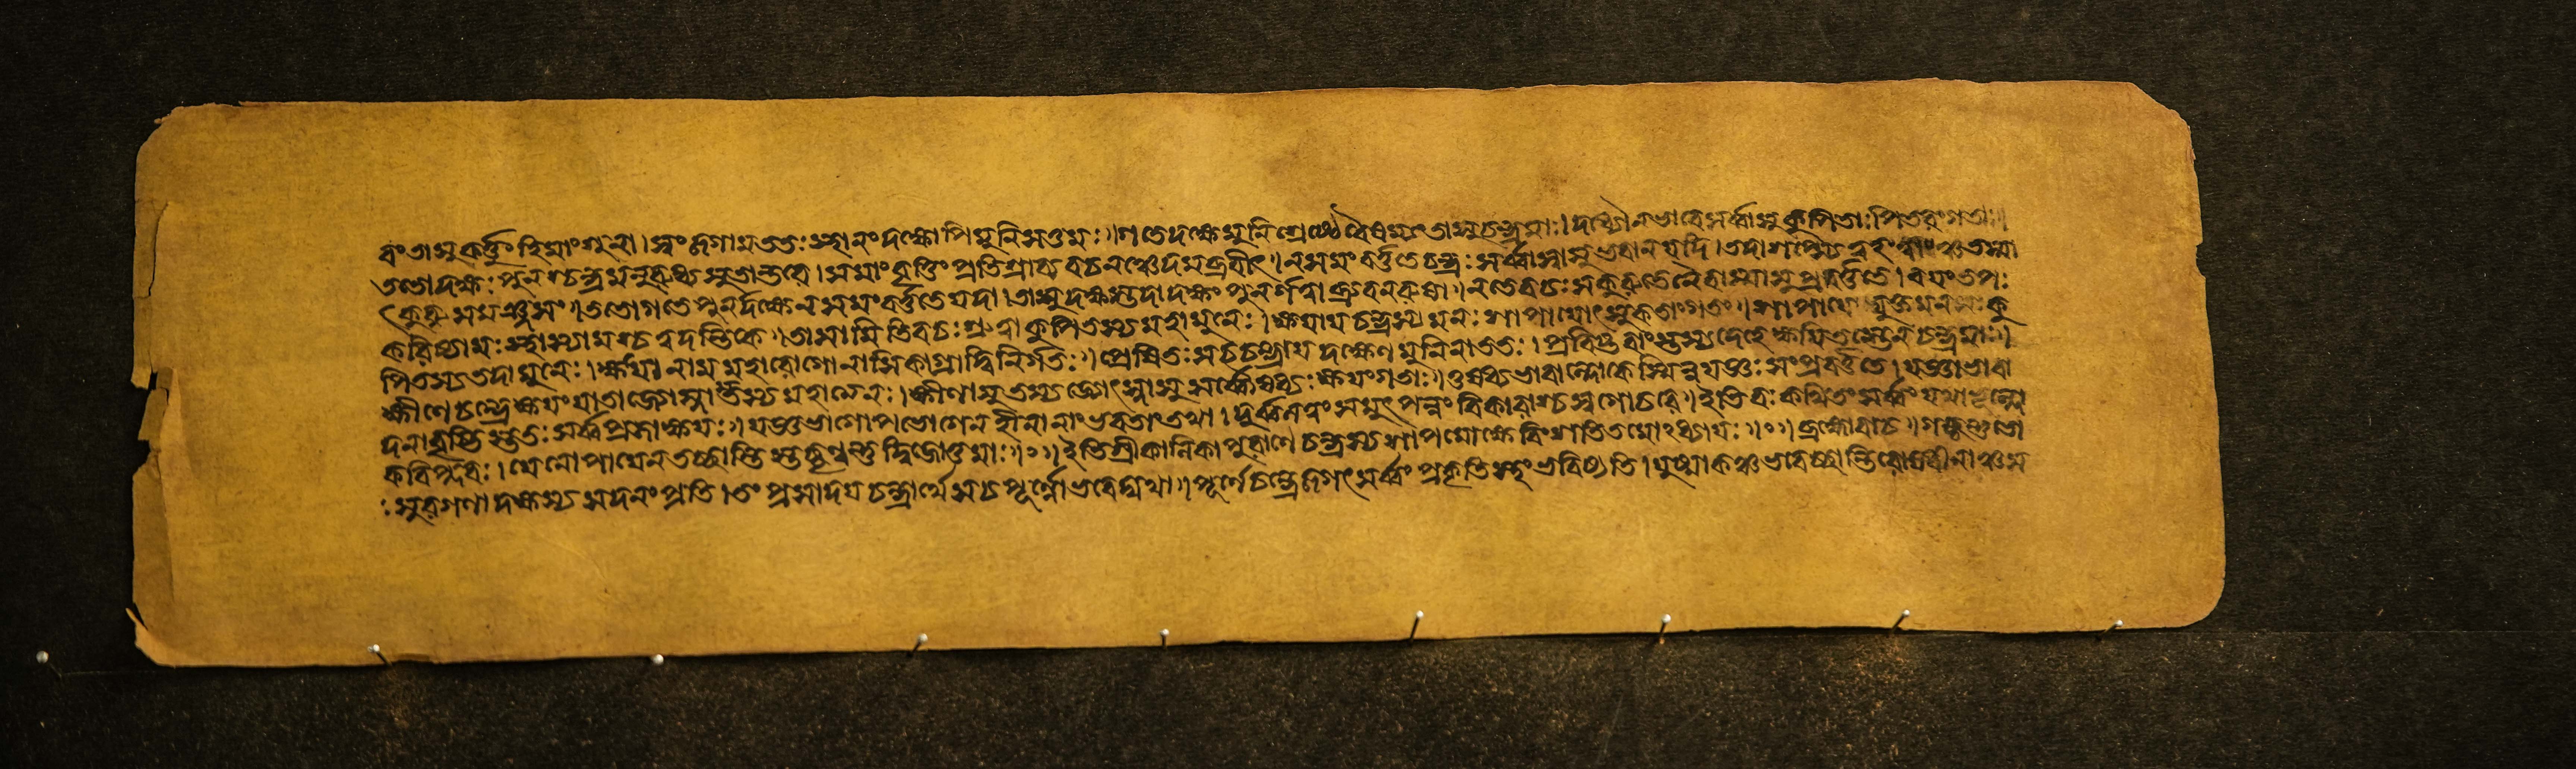 বং তাসু কর্ত্তুং হিমাংশুনা । স্বং জগাম ততঃ স্থানং দক্ষোপি মুনিসত্তমঃ ॥ গতে দক্ষে মুনিশ্রেষ্ঠে বৈষম্যং তাসু চন্দ্রমাঃ । দধ্যৌ ন ভাবে সর্ব্বাসু কুপিতাঃ পিতরং গতাঃ ॥
ততো দক্ষঃ পুনশ্চন্দ্রমনুরুধ্য সুতান্তরে । সমাং বৃত্তিং প্রতিশ্রাব্য বচনঞ্চেদমব্রবীৎ ॥ ন সমং বর্ত্ততে চন্দ্রঃ সর্ব্বাস্বাসু ভবান যদি । তদা শপ্স্যে ত্বহং তস্মা
ৎ কুরু সমঞ্জসং ॥ ততো গতে পুনর্দক্ষে ন সমং বর্ত্ততে যদা । তাসু দক্ষস্তদা দক্ষং পুনর্গত্বাব্রুবন রুষা ॥ ন তে বচঃ স কুরুতে নৈবাস্মাসু প্রবর্ত্ততে । বয়ং তপঃ
করিষ্যামঃ স্থাস্যামশ্চ ত্বদন্তিকে ॥ তাসামিতি বচঃ শ্রুত্বা কুপিতস্য মহামুনেঃ । ক্ষয়ায় চন্দ্রস্য মনঃ শাপায়োৎসুকতাং গতং ॥ শাপায়ো যুক্তমনসঃ কু
পিতস্য তদা মুনেঃ । ক্ষয়ো নাম মহারোগো নাসিকাগ্রাদ্বিনির্গতঃ ॥ প্রেষিতঃ স চ চন্দ্রায় দক্ষেণ মুনিনা ততঃ । প্রবিষ্টবাংস্তস্য দেহে ক্ষয়িতস্তেন চন্দ্রমাঃ ॥
ক্ষীণে চন্দ্রে ক্ষয়ং যাতা জ্যোৎস্নাস্তস্য মহাত্মনঃ । ক্ষীণাসু তস্য জ্যোৎস্নাসু সর্ব্বৌষধ্যঃ ক্ষয়ং গতাঃ ॥ ওষধ্যভাবাল্লোকেস্মিন্ন যজ্ঞঃ সংপ্রবর্ত্ততে । যজ্ঞাভাবা
দনাবৃষ্টিস্ততঃ সর্ব্বপ্রজাক্ষয়ঃ ॥ যজ্ঞভাগোপভোগেন হীনানাং ভবতাং তথা । দুর্ব্বলত্বং সমুৎপন্নং বিকারাশ্চ স্বগোচরে ॥ ইতি বঃ কথিতং সর্ব্বং যথাভূল্লো
কবিপ্লবঃ । যেনোপায়েন তচ্ছান্তিস্তচ্ছৃণ্বন্তু দ্বিজোত্তমাঃ ॥০॥ ইতি শ্রীকালিকাপুরাণে চন্দ্রস্য শাপমোক্ষে বিংশতিতমোঽধ্যায়ঃ ॥০॥ ব্রহ্মোবাচ ॥ গচ্ছন্তু ভো
ঃ সুরগণা দক্ষস্য সদনং প্রতি । তং প্রসাদয় চন্দ্রার্থে স চ পূর্ণো ভবেদ্যথা ॥ পূর্ণে চন্দ্রে জগৎ সর্ব্বং প্রকৃতিস্থং ভবিষ্যতি । যুষ্মাকঞ্চ ভবেচ্ছান্তিরোষধীনাঞ্চ স